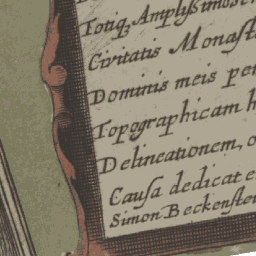 Totiq, Amplissimo
Civitatis Monast
Dominis meis per
Topographicam h
Delineationem, o
Causa dedicat e
Simon Beckenstei